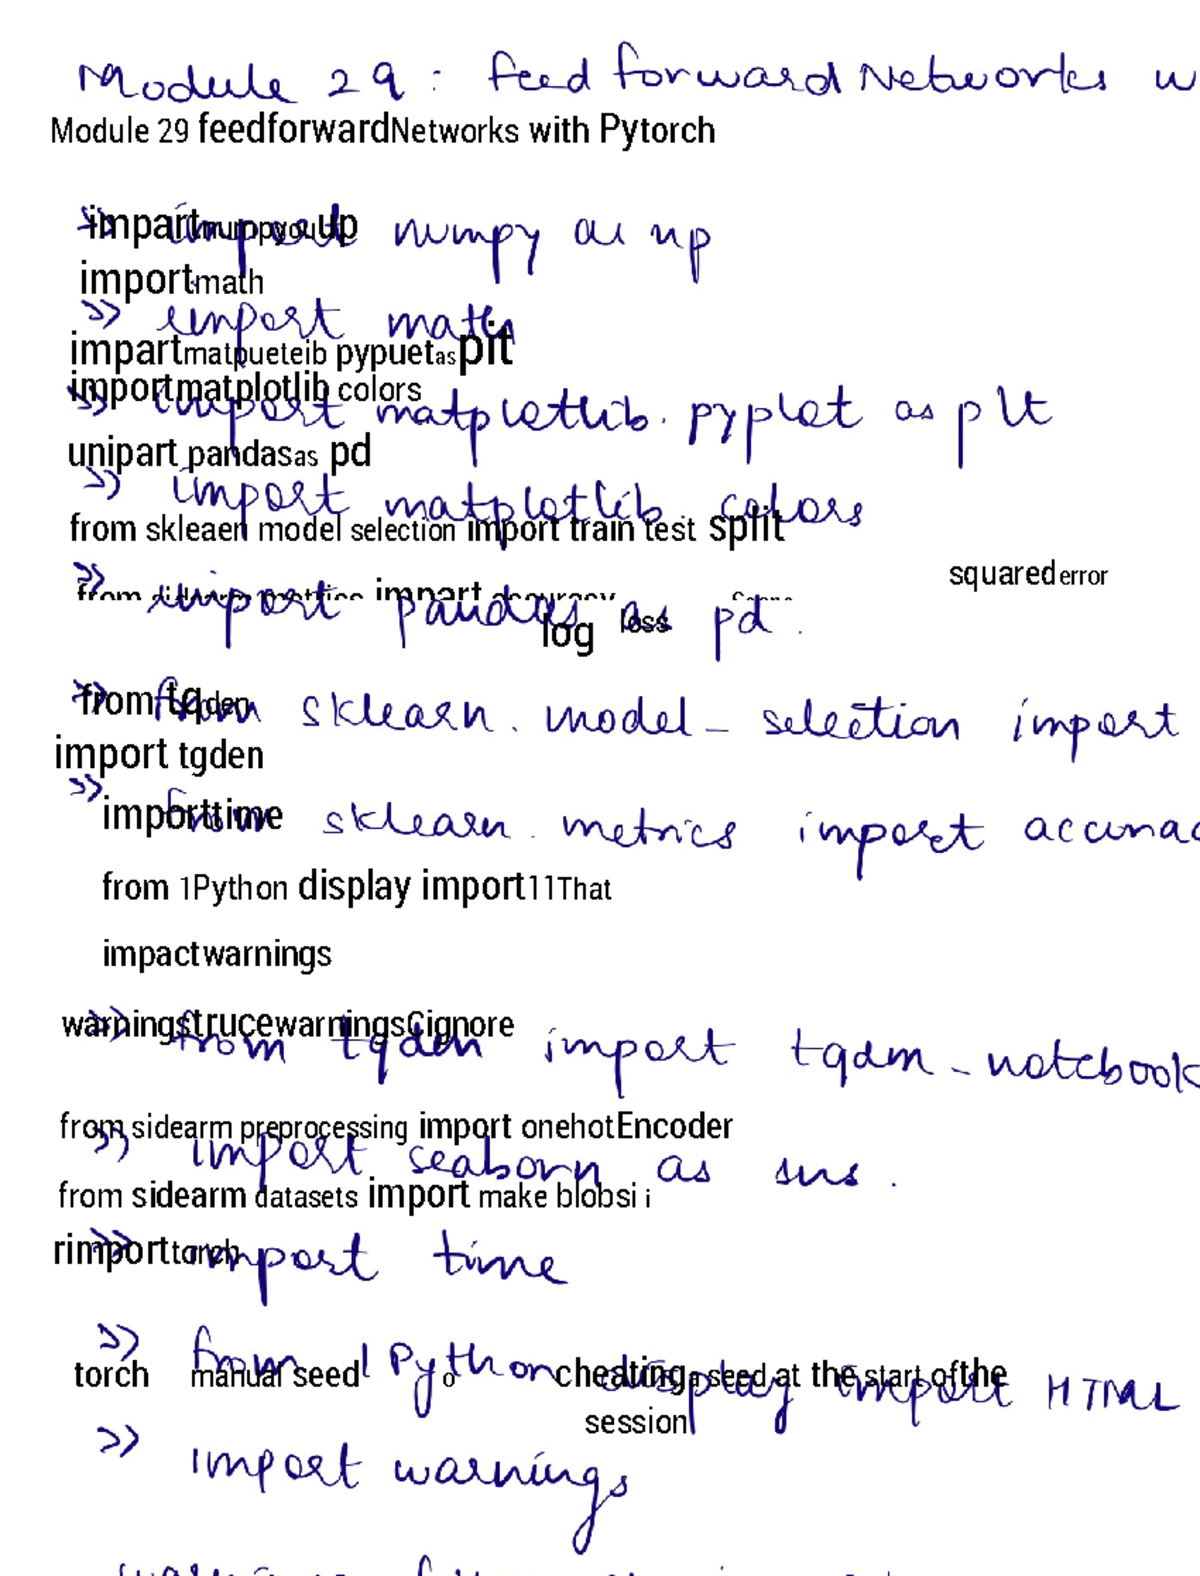 Module 29 : Feed forward Networks w
Module 29 feedforwardNetworks with Pytorch
>> import numpy as np
impart up
importmath
>> import math
impartmatpueteib pypuetas pit
importmatplotlib colors
>> import matplotlib. pyplot as plt
unipart pandasas pd
>> import matplotlib. colors
from skleaen model selection import train test split
squared error
>> import pandas as pd .
log loss
>> from sklearn. model_ selection import
from tqden
import tgden
>> from sklearn. metrics import accurac
importtime
from 1Python display import11That
impactwarnings
warningstrucewarningsCignore
>> from tqdm import tqdm_notebook
from sidearm preprocessing import onehotEncoder
>> import seaborn as sns .
from sidearm datasets import make blobsi i
rimporttorch
>> import time
>> from IPython display import HTML
torch manual seed o cheating a seed at the start ofthe
session
>> import warnings